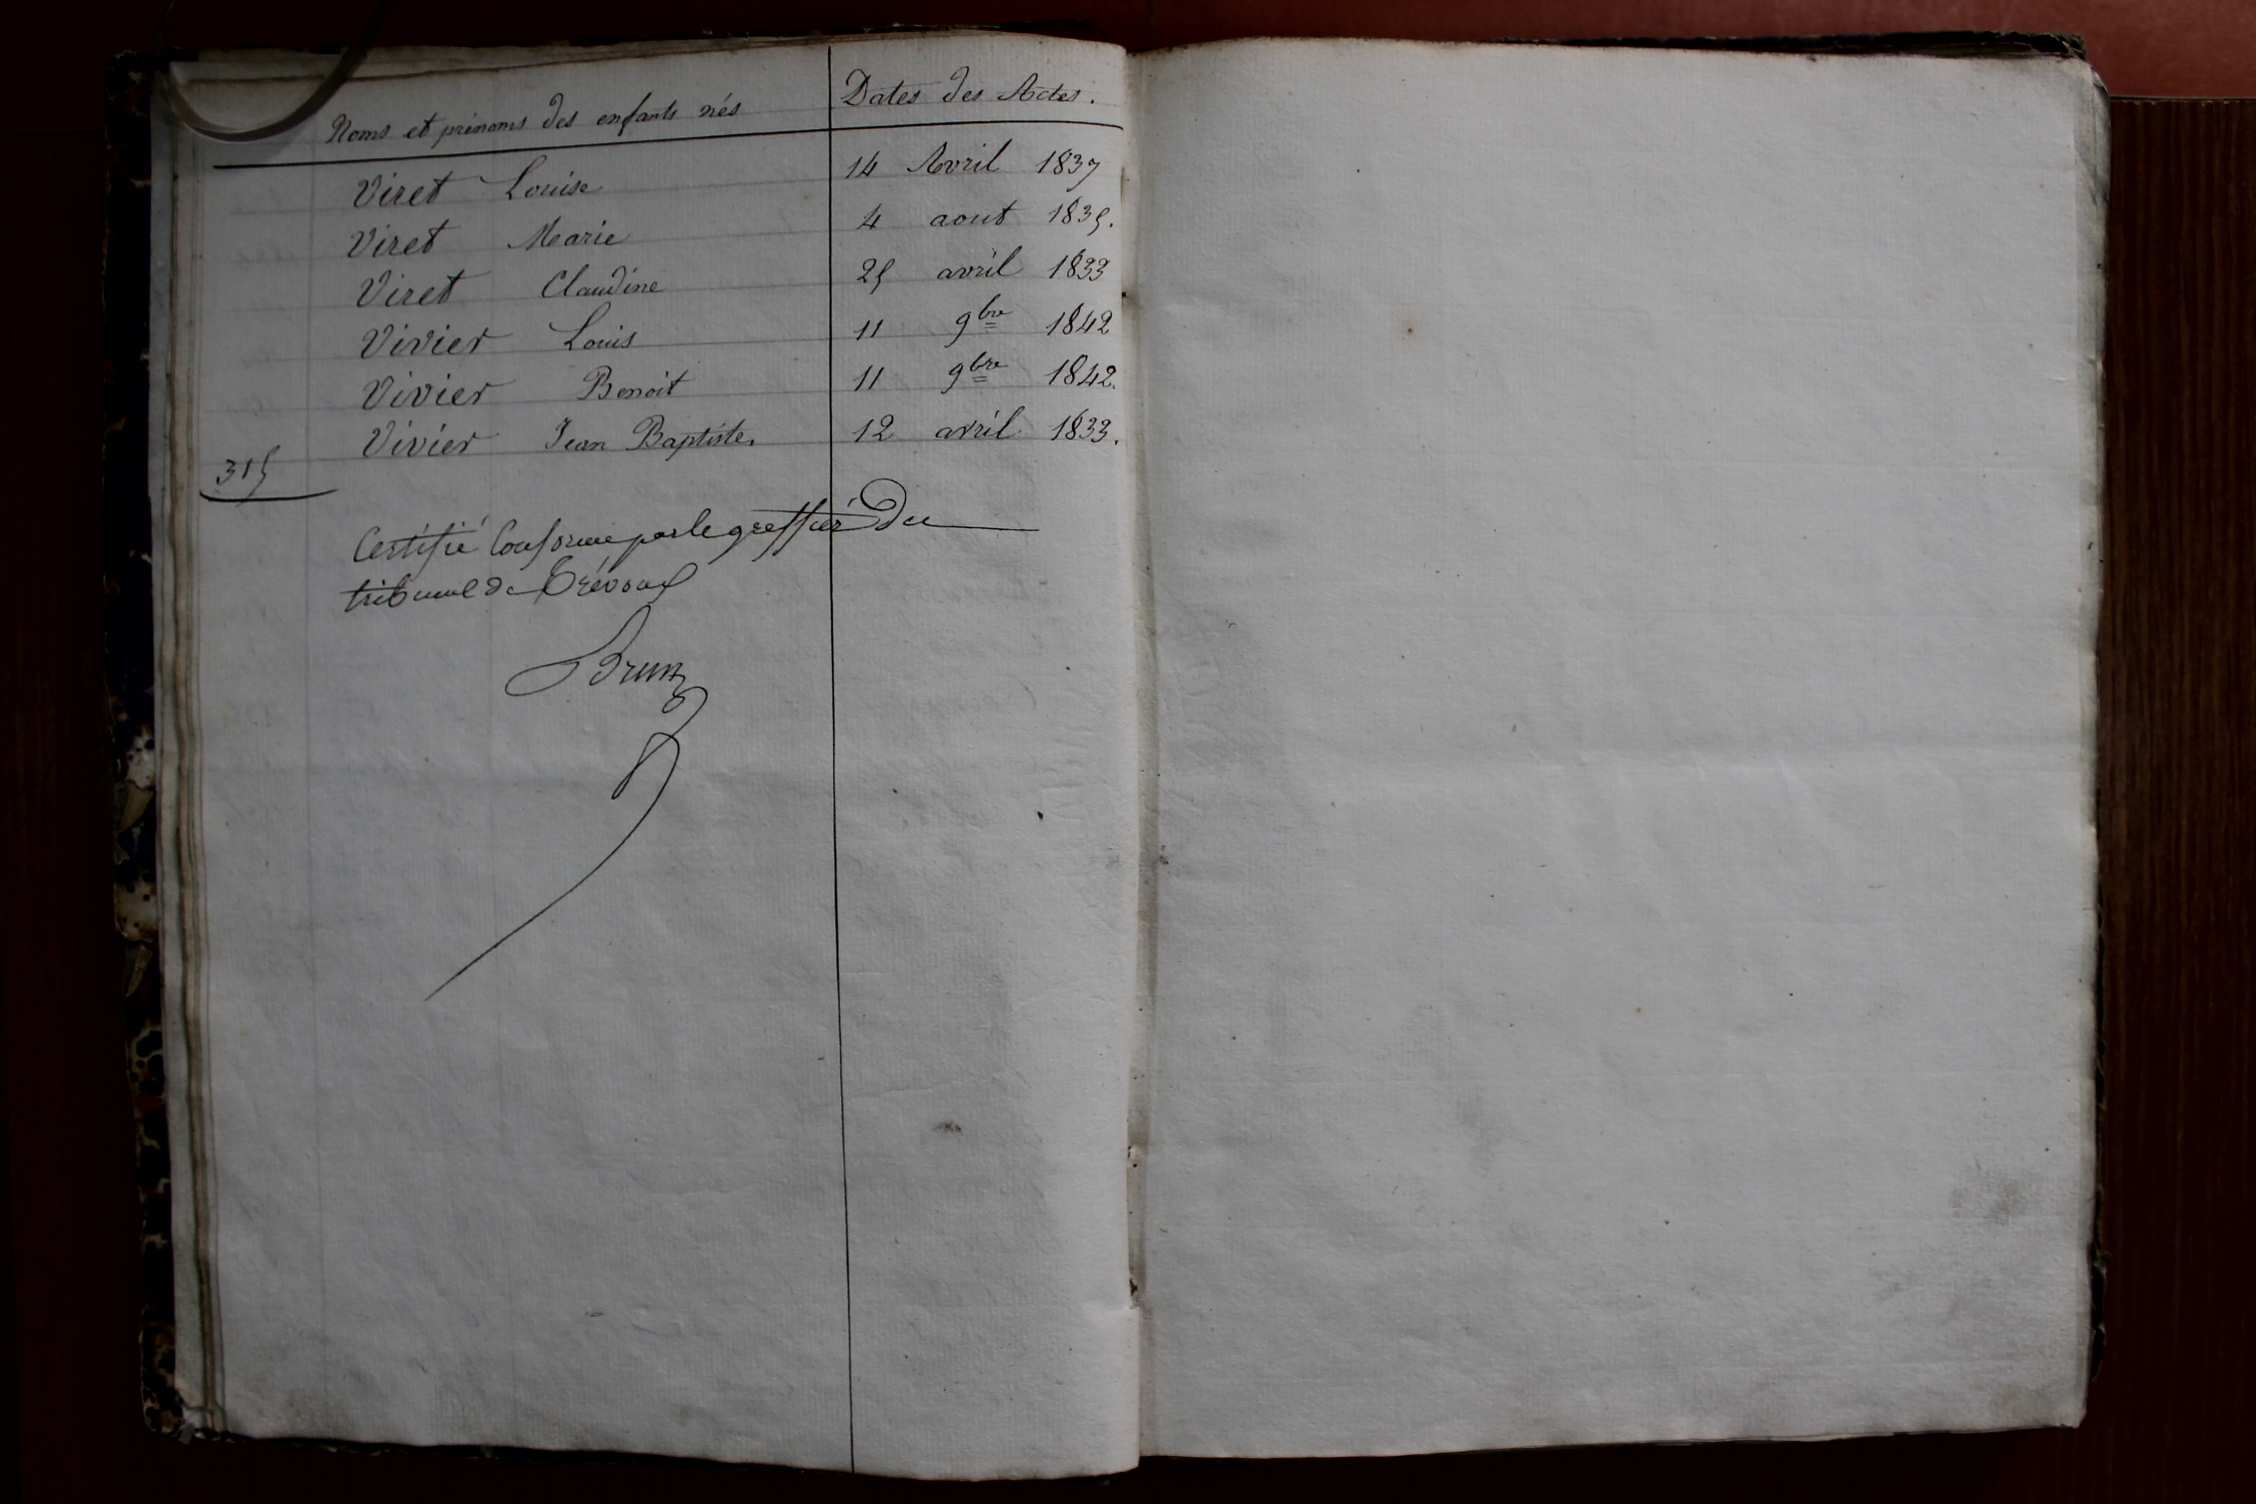 Noms et prénoms des enfants nés Dates des Actes.
Viret Louise 14 Avril 1837
Viret Marie 4 aout 1835.
Viret Claudine 25 avril 1833
Vivier Louis 11 9bre 1842
Vivier Benoit 11 9bre 1842.
Vivier Jean Baptiste. 12 avril 1833.
315
Certifié Conforme par le greffier du
tribunal de Trévoux
Brun